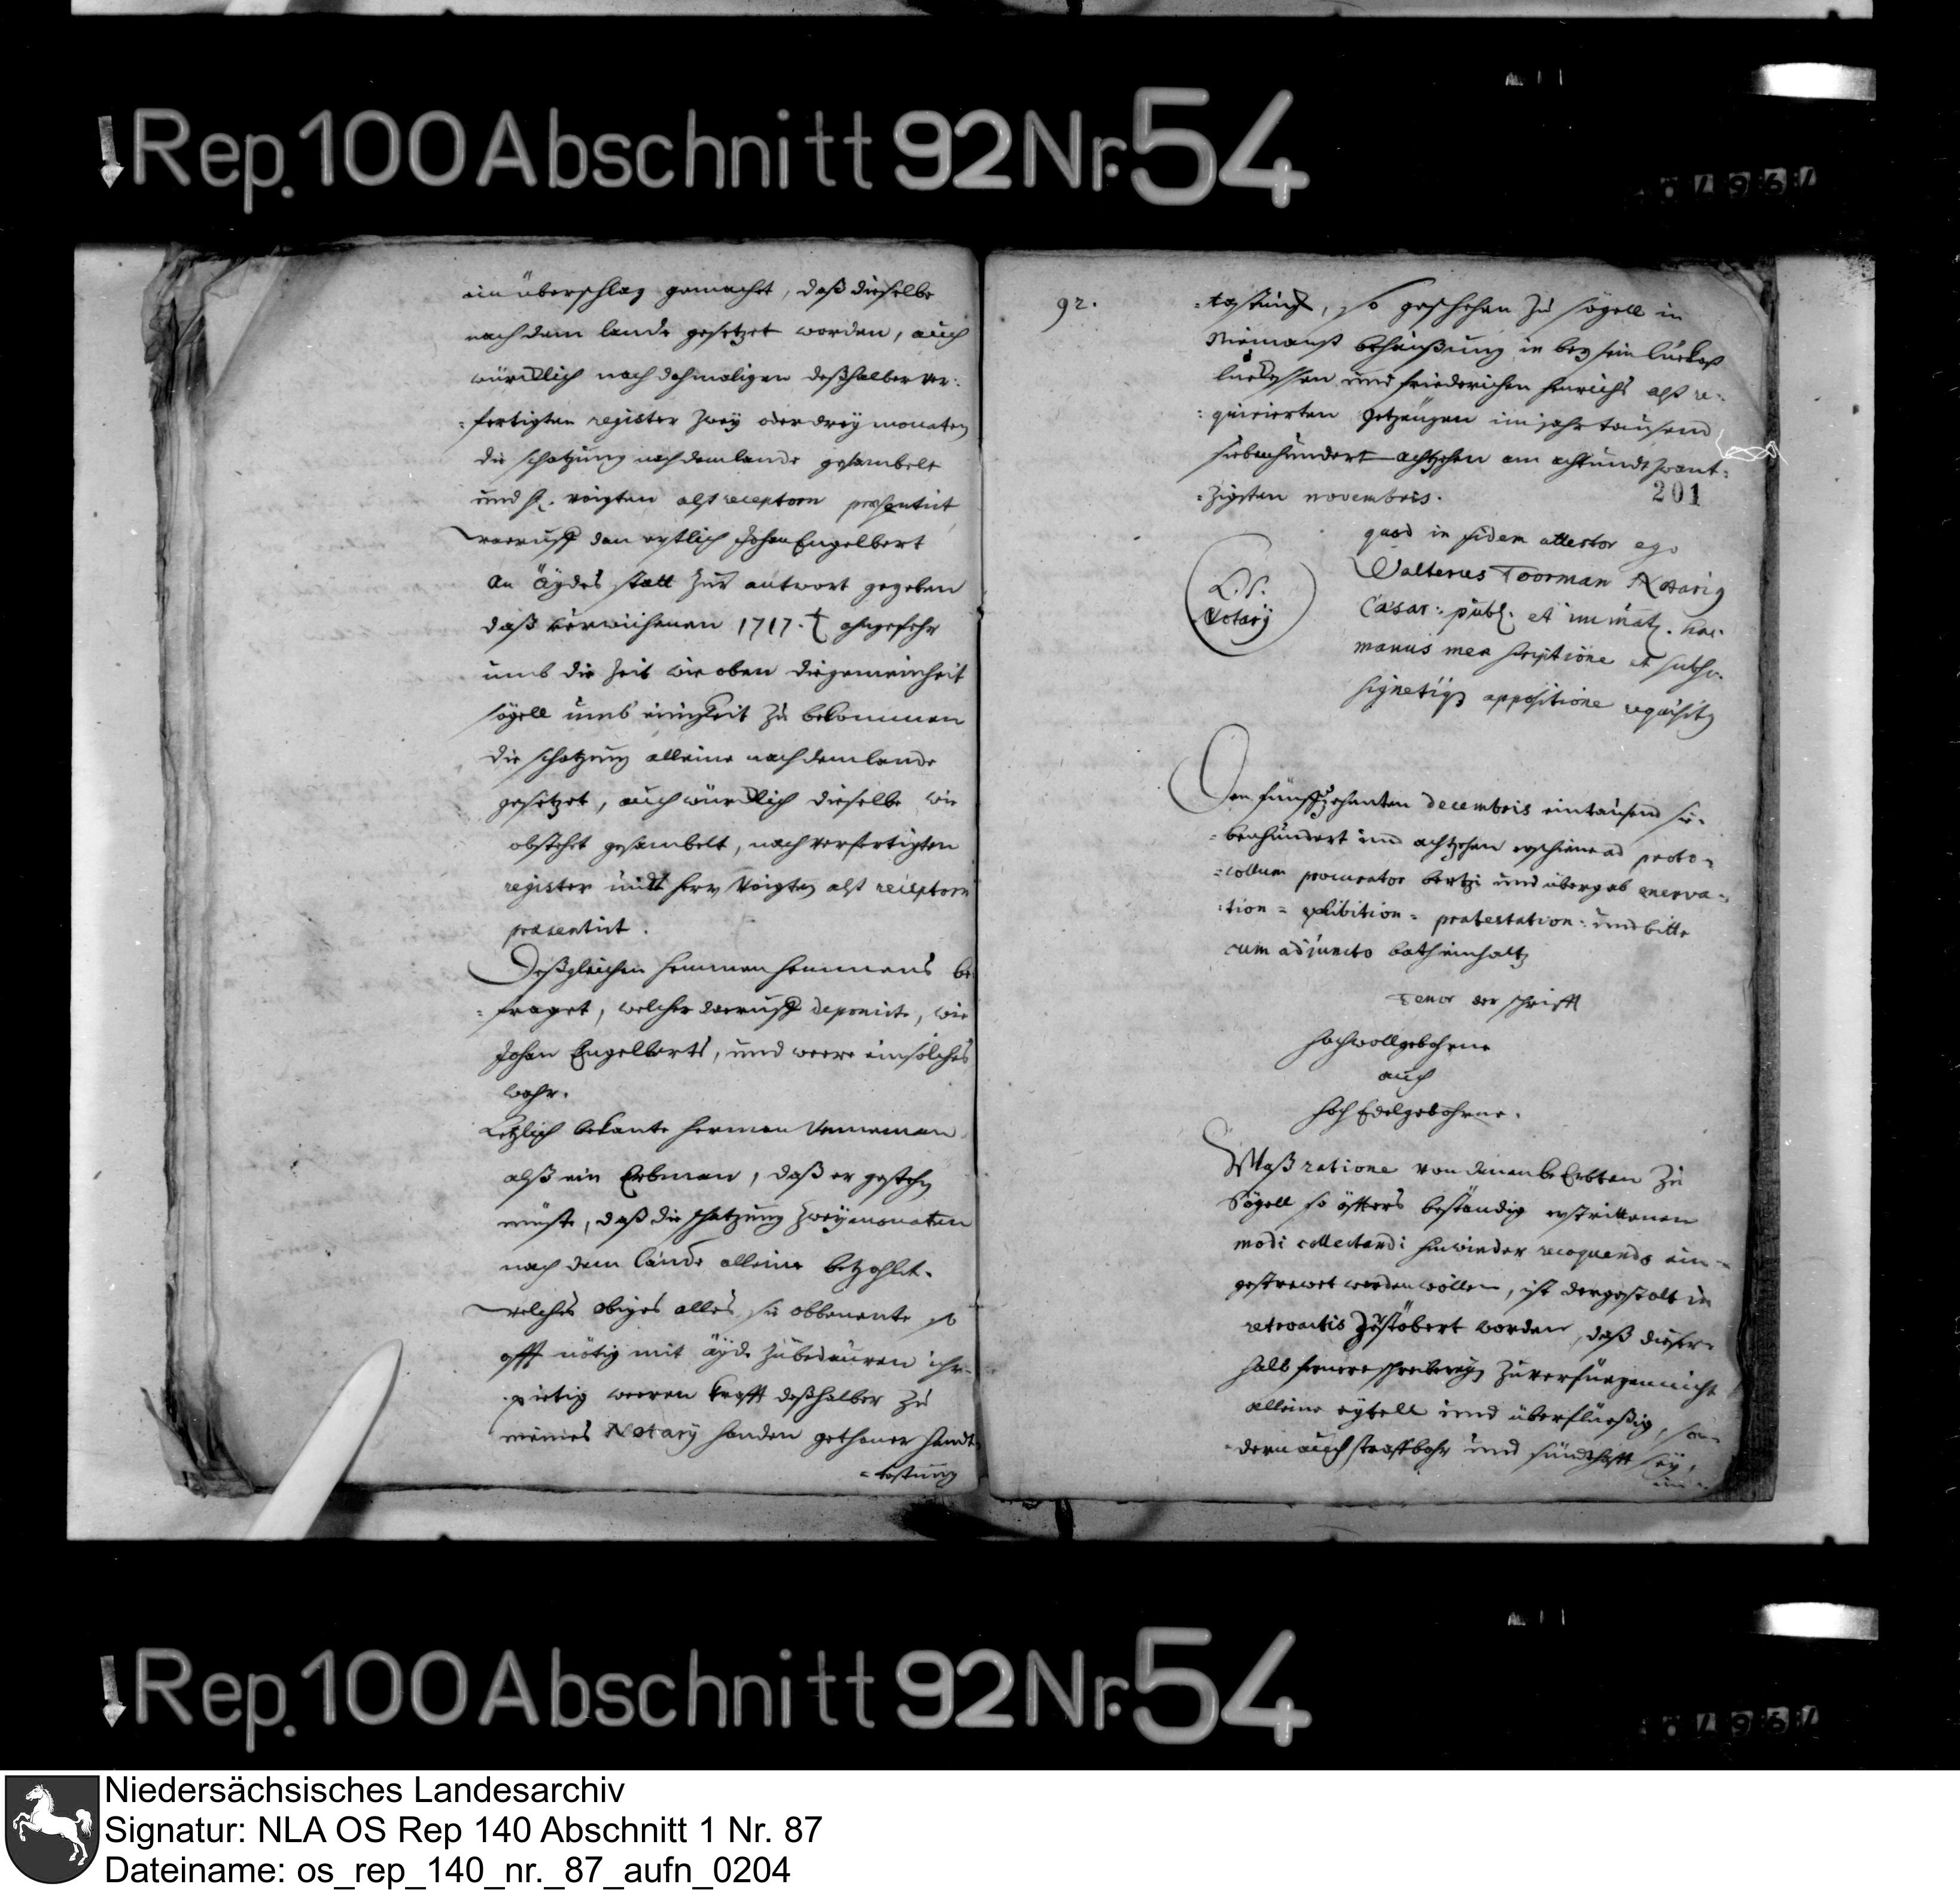 Rep. 100 Abschnitt 92 Nr. 54
ein überschlag gemacht, daß dieselbe
nach dem lande gesetzet worden, auch
würcklich nach dahmaligen deßhalber ver=
=fertigten register zwey oder drey monaten
die schatzung nach dem lande gesambelt
und H. voigten alß receptorn præsentirt
worauff dan erstlich Johan Engelbert
an äydes statt zur antwort gegeben
daß verwichenen 1717. ohngefehr
umb die zeit wie oben die gemeinheit
sögell umb einigkeit zu bekommen
die schatzung alleine nach dem lande
gesetzet, auch würcklich dieselbe wie
obstehet gesambelt, nach verfertigten
register undt herrn Voigten alß receptorn
præsentirt.
Deßgleichen hemmen hemmens be
=fraget, welcher darauff deponirte, wie
Johan Engelberts, und were ein solches
wahr.
Letzlich bekante herman Venneman
alß ein Erbman, daß er gestehen
müste, daß die schatzung zwey monaten
nach dem lande alleine bezahlet.
welches obiges alles sie obbenente so
offt nötig mit äyde zu bedeuren
weren krafft deßhalber zu
meines Notarÿ handen gethaner handt
=tastung
92.
=tastung, so geschehen zu sögell in
behaußung in bey sein
und friederichen henrichs alß re=
=quirierten getzeugen im jahr tausend
siebenhundert achtzehen am acht und zwant=
=zigsten novembris.
201
quod in fidem attestor ego
Walterus Toorman Notarius
Cæsar: publ: et immat.
manus mea scriptione et subscr.
signetique appositione requisitus
L. S.
Notarÿ
Den funffzehenten decembris eintausend sie=
=benhundert und achtzehen erschiene ad proto=
=collum procurator und übergab enerva=
=tion= exhibition= protestation= und bitte
cum adjuncto bath einhalts
Tenor der schrifft
hochwollgebohrne
auch
hoch Edelgebohrne.
Waß ratione von denen beErbten zu
Sögell so öffters beständig erstrittenen
modi collectandi hinwieder recoquendo ein=
gestrewet werden wollen, ist dergestalt in
retroactis zerstöbert worden, daß dieser=
halb fernere schreiberey zu verfüegen nicht
alleine eytell und überflüeßig, son=
=dern auch straffbahr und sündhafft sey,
Rep. 100 Abschnitt 92 Nr. 54
Niedersächsisches Landesarchiv
Signatur: NLA OS Rep 140 Abschnitt 1 Nr. 87
Dateiname: os_rep_140_nr._87_aufn_0204